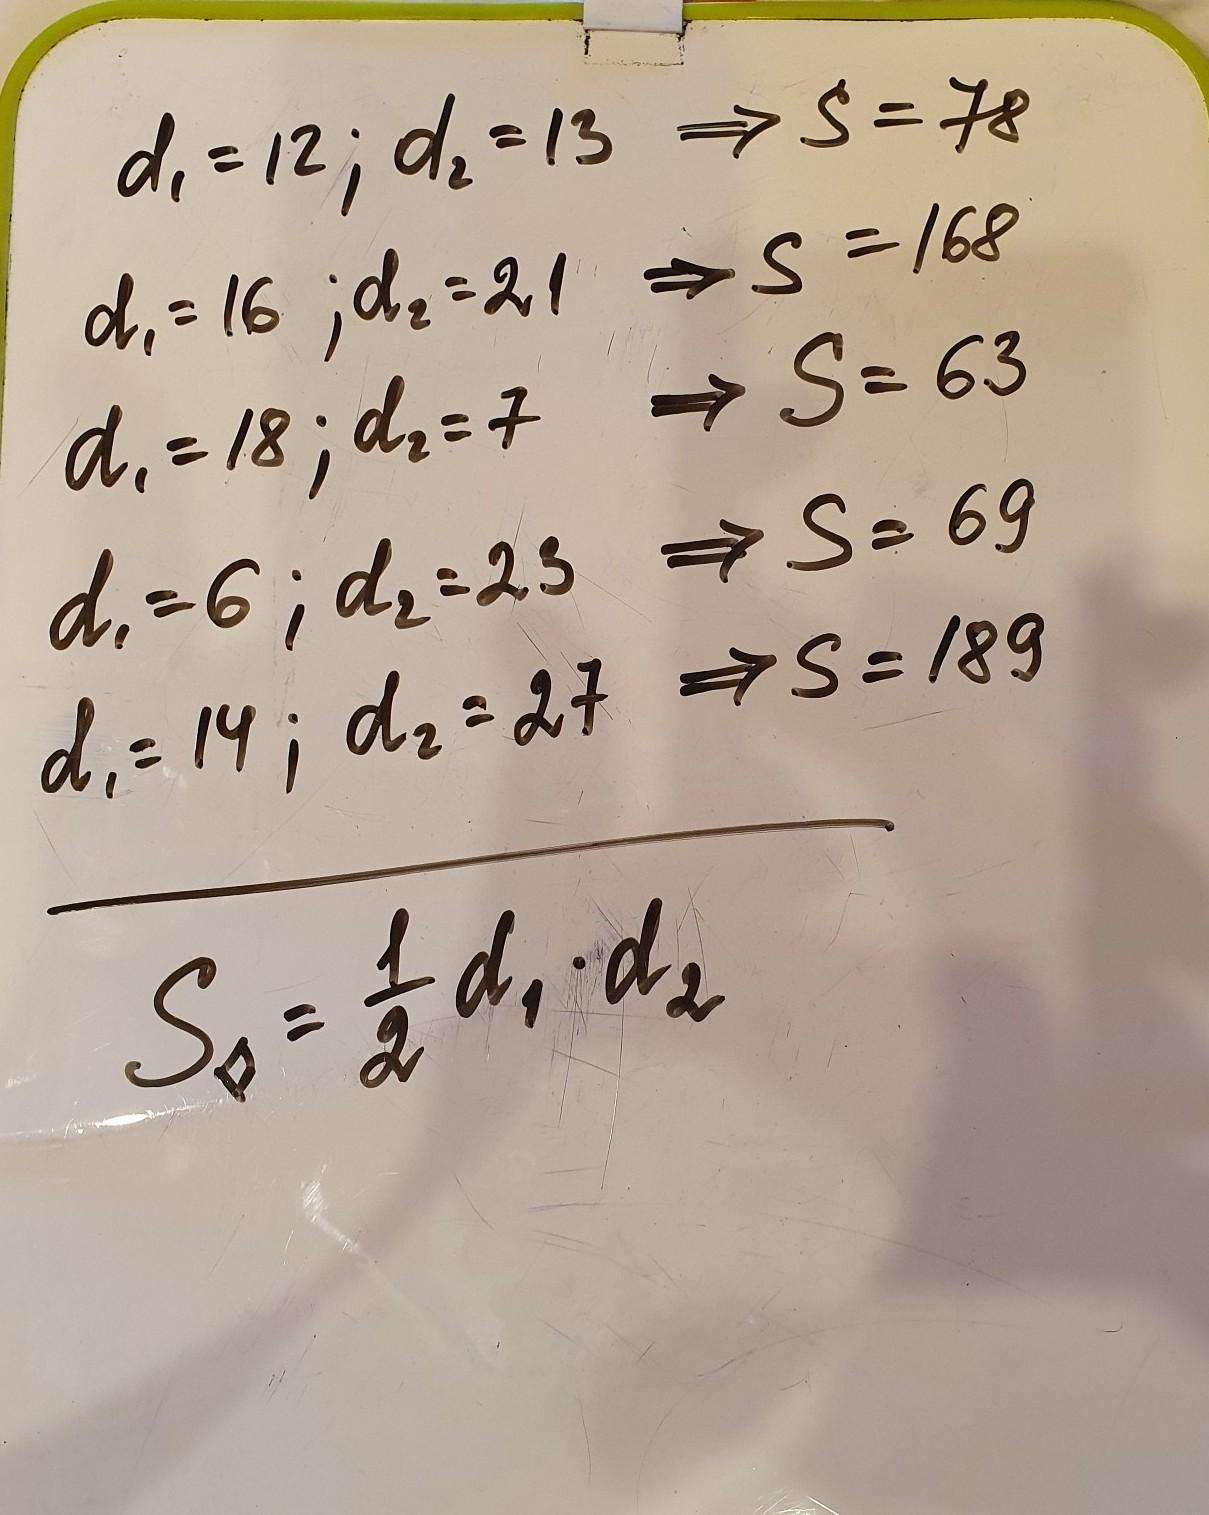 d₁ = 12; d₂ = 13 ⇒ S = 78
d₁ = 16; d₂ = 21 ⇒ S = 168
d₁ = 18; d₂ = 7 ⇒ S = 63
d₁ = 6; d₂ = 23 ⇒ S = 69
d₁ = 14; d₂ = 27 ⇒ S = 189
S◊ = 1/2 d₁ · d₂